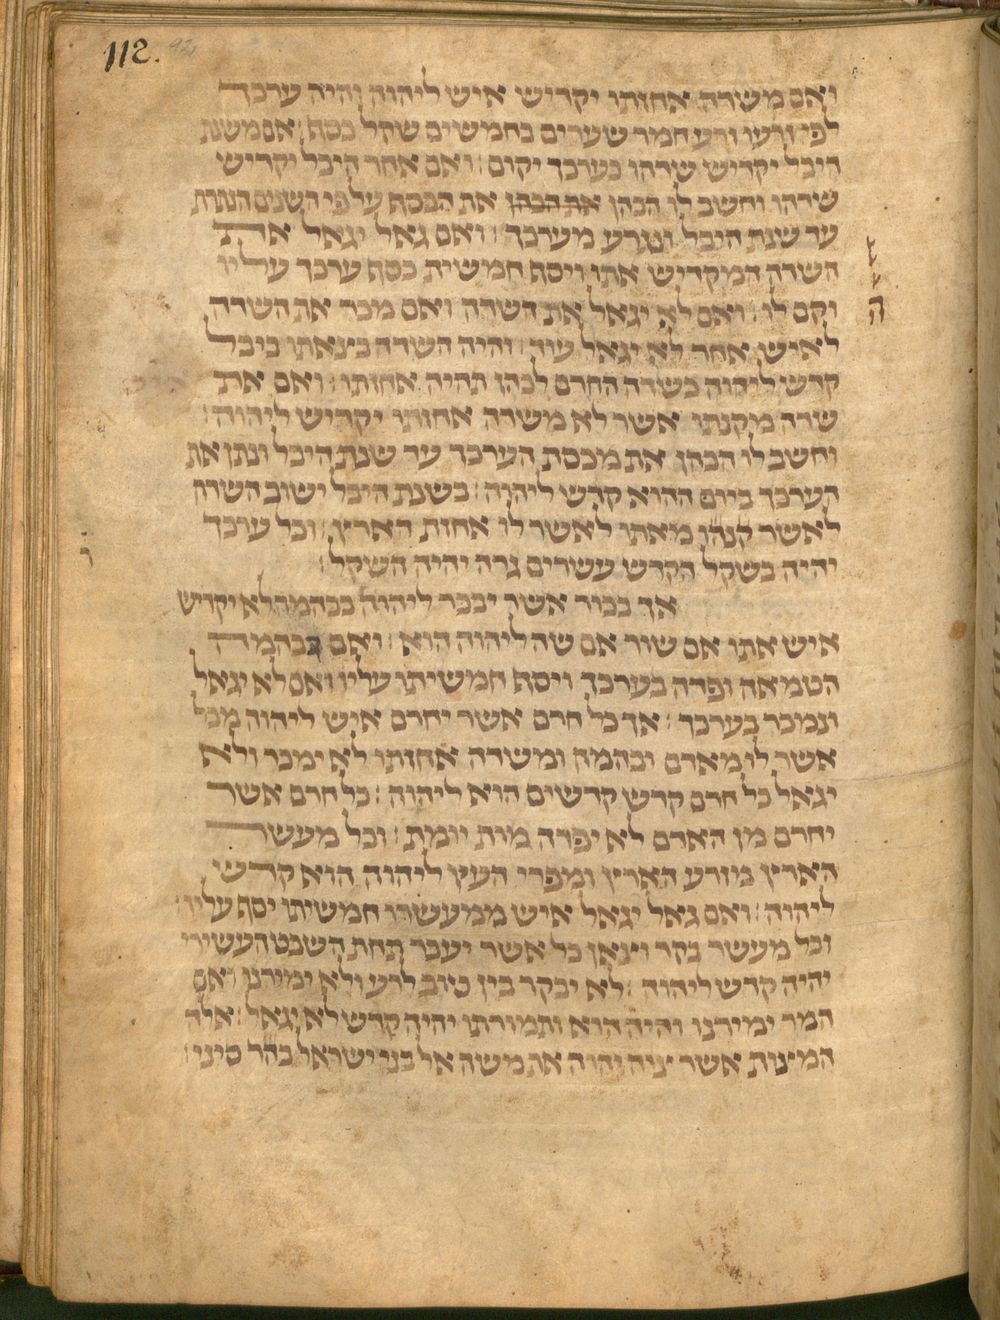 112.
92
ואם משדה אחזתו יקדיש איש ליהוה והיה ערכך
לפי זרעו זרע חמר שערים בחמשים שקל כסף : אם משנת
היבל יקדיש שדהו כערכך יקום : ואם אחר היבל יקדיש
שדהו וחשב לו הכהן את הכהן את הכסף על פי השנים הנותרת
עד שנת היבל ונגרע מערכך : ואם גאל יגאל את
השדה המקדיש אתו ויסף חמשית כסף ערכך עליו
וקם לו : ואם לא יגאל את השדה ואם מכר את השדה
ה
לאיש אחר לא יגאל עוד : והיה השדה בצאתו ביבל
קדש ליהוה כשדה החרם לכהן תהיה אחזתו : ואם את
שדה מקנתו אשר לא משדה אחזתו יקדיש ליהוה :
וחשב לו הכהן את מכסת הערכך עד שנת היבל ונתן את
הערכך ביום ההוא קדש ליהוה : בשנת היבל ישוב השדה
לאשר קנהו מאתו לאשר לו אחזת הארץ : וכל ערכך
יהיה בשקל הקדש עשרים גרה יהיה השקל :
אך בכור אשר יבכר ליהוה בבהמה לא יקדיש
איש אתו אם שור אם שה ליהוה הוא : ואם בבהמה
הטמאה ופדה בערכך ויסף חמשיתו עליו ואם לא יגאל
ונמכר בערכך : אך כל חרם אשר יחרם איש ליהוה מכל
אשר לו מאדם ובהמה ומשדה אחזתו לא ימכר ולא
יגאל כל חרם קדש קדשים הוא ליהוה : כל חרם אשר
יחרם מן האדם לא יפדה מות יומת : וכל מעשר
הארץ מזרע הארץ ומפרי העץ ליהוה הוא קדש
ליהוה : ואם גאל יגאל איש ממעשרו חמשיתו יסף עליו :
וכל מעשר בקר וצאן כל אשר יעבר תחת השבט העשירי
יהיה קדש ליהוה : לא יבקר בין טוב לרע ולא ימירנו ואם
המר ימירנו והיה הוא ותמורתו יהיה קדש לא יגאל : אלה
המצות אשר צוה יהוה את משה אל בני ישראל בהר סיני :